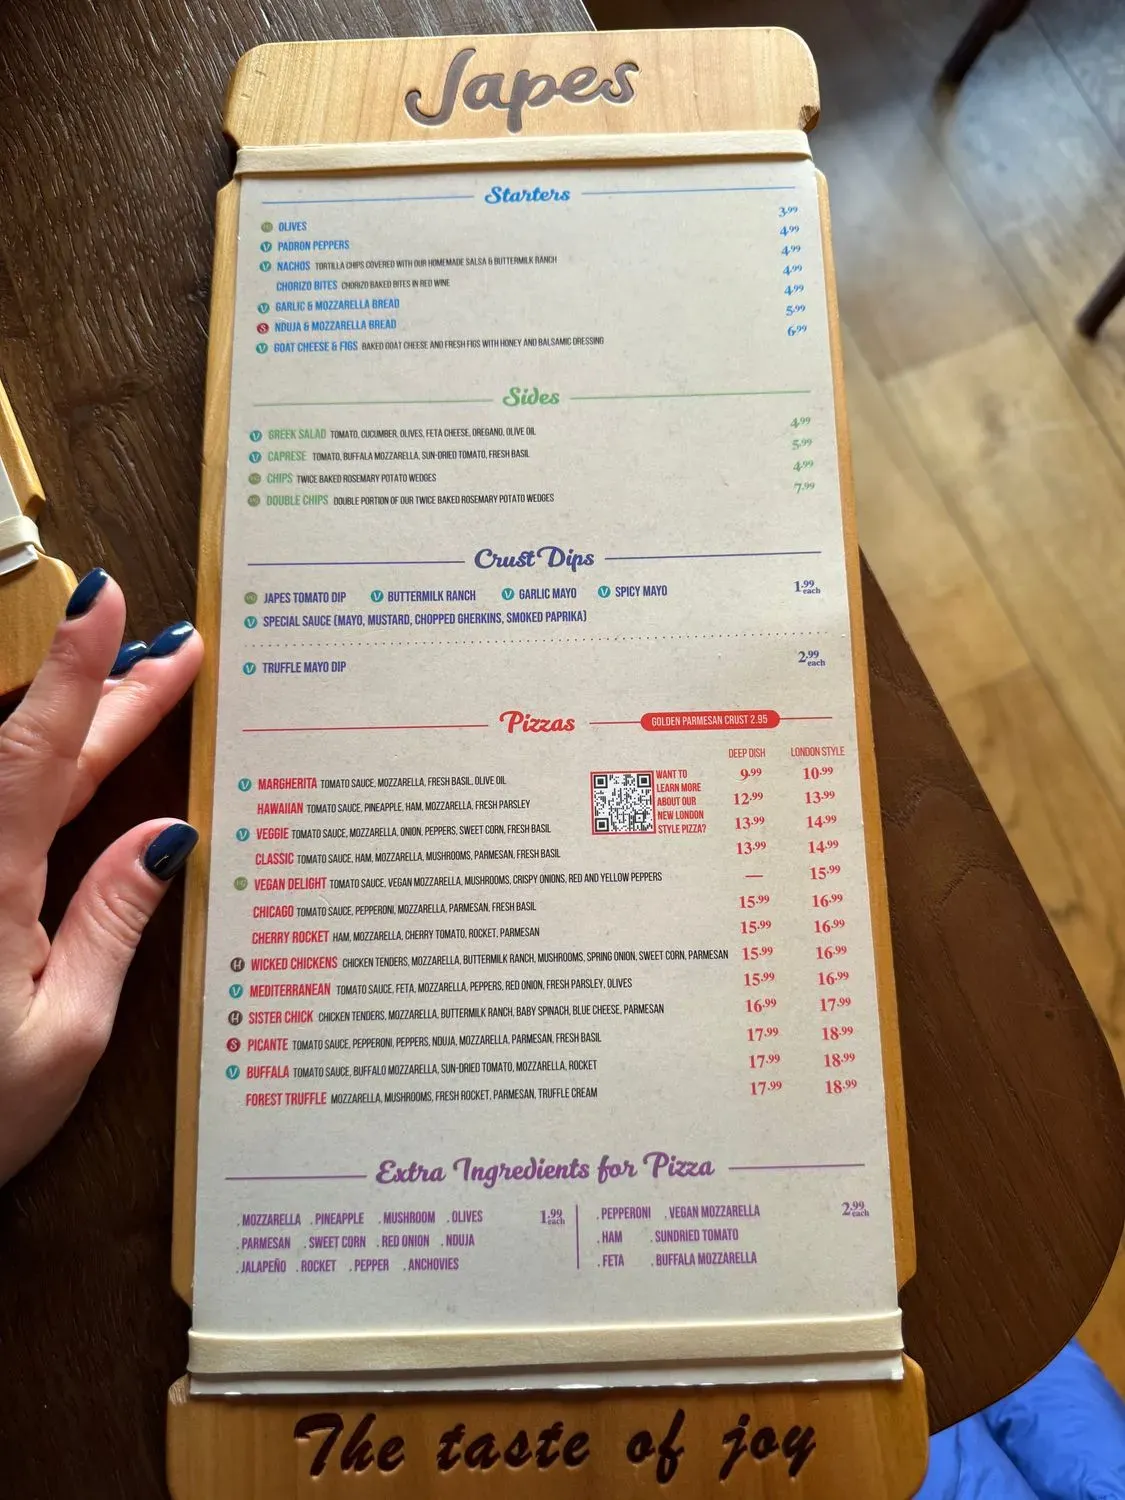 Japes
Starters
VG OLIVES 3.99
V PADRON PEPPERS 4.99
V NACHOS TORTILLA CHIPS COVERED WITH OUR HOMEMADE SALSA & BUTTERMILK RANCH 4.99
CHORIZO BITES CHORIZO BAKED BITES IN RED WINE 4.99
V GARLIC & MOZZARELLA BREAD 4.99
S NDUJA & MOZZARELLA BREAD 5.99
V GOAT CHEESE & FIGS BAKED GOAT CHEESE AND FRESH FIGS WITH HONEY AND BALSAMIC DRESSING 6.99
Sides
V GREEK SALAD TOMATO, CUCUMBER, OLIVES, FETA CHEESE, OREGANO, OLIVE OIL 4.99
V CAPRESE TOMATO, BUFALLA MOZZARELLA, SUN-DRIED TOMATO, FRESH BASIL 5.99
VG CHIPS TWICE BAKED ROSEMARY POTATO WEDGES 4.99
VG DOUBLE CHIPS DOUBLE PORTION OF OUR TWICE BAKED ROSEMARY POTATO WEDGES 7.99
Crust Dips
VG JAPES TOMATO DIP V BUTTERMILK RANCH V GARLIC MAYO V SPICY MAYO 1.99 each
V SPECIAL SAUCE (MAYO, MUSTARD, CHOPPED GHERKINS, SMOKED PAPRIKA)
V TRUFFLE MAYO DIP 2.99 each
Pizzas GOLDEN PARMESAN CRUST 2.95
DEEP DISH LONDON STYLE
WANT TO
LEARN MORE
ABOUT OUR
NEW LONDON
STYLE PIZZA?
V MARGHERITA TOMATO SAUCE, MOZZARELLA, FRESH BASIL, OLIVE OIL 9.99 10.99
HAWAIIAN TOMATO SAUCE, PINEAPPLE, HAM, MOZZARELLA, FRESH PARSLEY 12.99 13.99
V VEGGIE TOMATO SAUCE, MOZZARELLA, ONION, PEPPERS, SWEET CORN, FRESH BASIL 13.99 14.99
CLASSIC TOMATO SAUCE, HAM, MOZZARELLA, MUSHROOMS, PARMESAN, FRESH BASIL 13.99 14.99
VG VEGAN DELIGHT TOMATO SAUCE, VEGAN MOZZARELLA, MUSHROOMS, CRISPY ONIONS, RED AND YELLOW PEPPERS — 15.99
CHICAGO TOMATO SAUCE, PEPPERONI, MOZZARELLA, PARMESAN, FRESH BASIL 15.99 16.99
CHERRY ROCKET HAM, MOZZARELLA, CHERRY TOMATO, ROCKET, PARMESAN 15.99 16.99
H WICKED CHICKENS CHICKEN TENDERS, MOZZARELLA, BUTTERMILK RANCH, MUSHROOMS, SPRING ONION, SWEET CORN, PARMESAN 15.99 16.99
V MEDITERRANEAN TOMATO SAUCE, FETA, MOZZARELLA, PEPPERS, RED ONION, FRESH PARSLEY, OLIVES 15.99 16.99
H SISTER CHICK CHICKEN TENDERS, MOZZARELLA, BUTTERMILK RANCH, BABY SPINACH, BLUE CHEESE, PARMESAN 16.99 17.99
S PICANTE TOMATO SAUCE, PEPPERONI, PEPPERS, NDUJA, MOZZARELLA, PARMESAN, FRESH BASIL 17.99 18.99
V BUFALLA TOMATO SAUCE, BUFFALO MOZZARELLA, SUN-DRIED TOMATO, MOZZARELLA, ROCKET 17.99 18.99
FOREST TRUFFLE MOZZARELLA, MUSHROOMS, FRESH ROCKET, PARMESAN, TRUFFLE CREAM 17.99 18.99
Extra Ingredients for Pizza
. MOZZARELLA . PINEAPPLE . MUSHROOM . OLIVES 1.99 each
. PARMESAN . SWEET CORN . RED ONION . NDUJA
. JALAPEÑO . ROCKET . PEPPER . ANCHOVIES
. PEPPERONI . VEGAN MOZZARELLA 2.99 each
. HAM . SUNDRIED TOMATO
. FETA . BUFFALA MOZZARELLA
The taste of joy